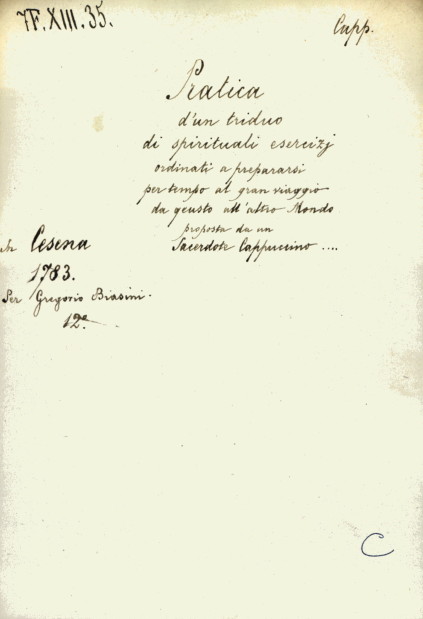 7F.XIII.35.
Capp.
Pratica
d'un triduo
di spirituali esercizj
ordinati a prepararsi
per tempo al gran viaggio
da questo all'altro Mondo
proposta da un
Sacerdote Cappuccino ....
Cesena
1783.
Per Gregorio Biasini.
12º
C